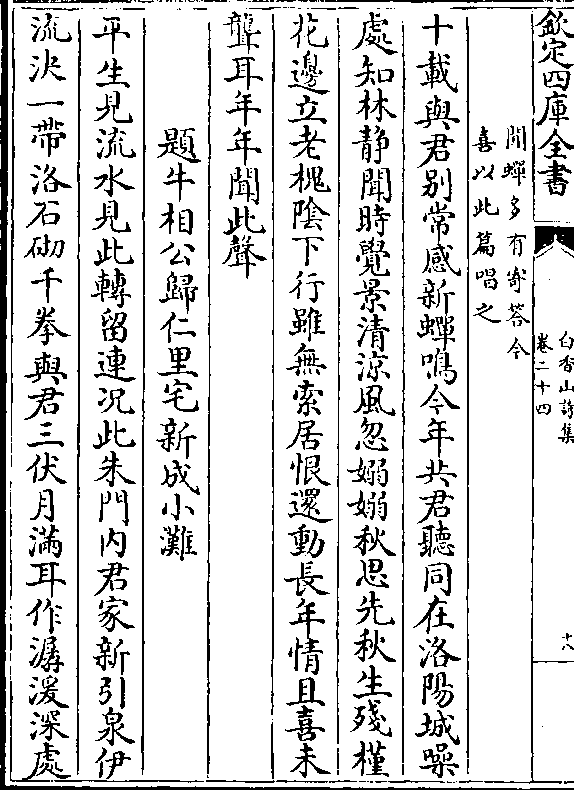 欽定四庫全書
白香山詩集
卷二十四
十八
聞蟬多有寄荅今
喜以此篇唱之
十載與君别常感新蟬鳴今年共君聽同在洛陽城噪
處知林静聞時覺景清涼風忽嫋嫋秋思先秋生殘槿
花邊立老槐陰下行雖無索居恨還動長年情且喜未
聾耳年年聞此聲
題牛相公歸仁里宅新成小灘
平生見流水見此轉留連况此朱門内君家新引泉伊
流決一帶洛石砌千拳與君三伏月滿耳作潺湲深處